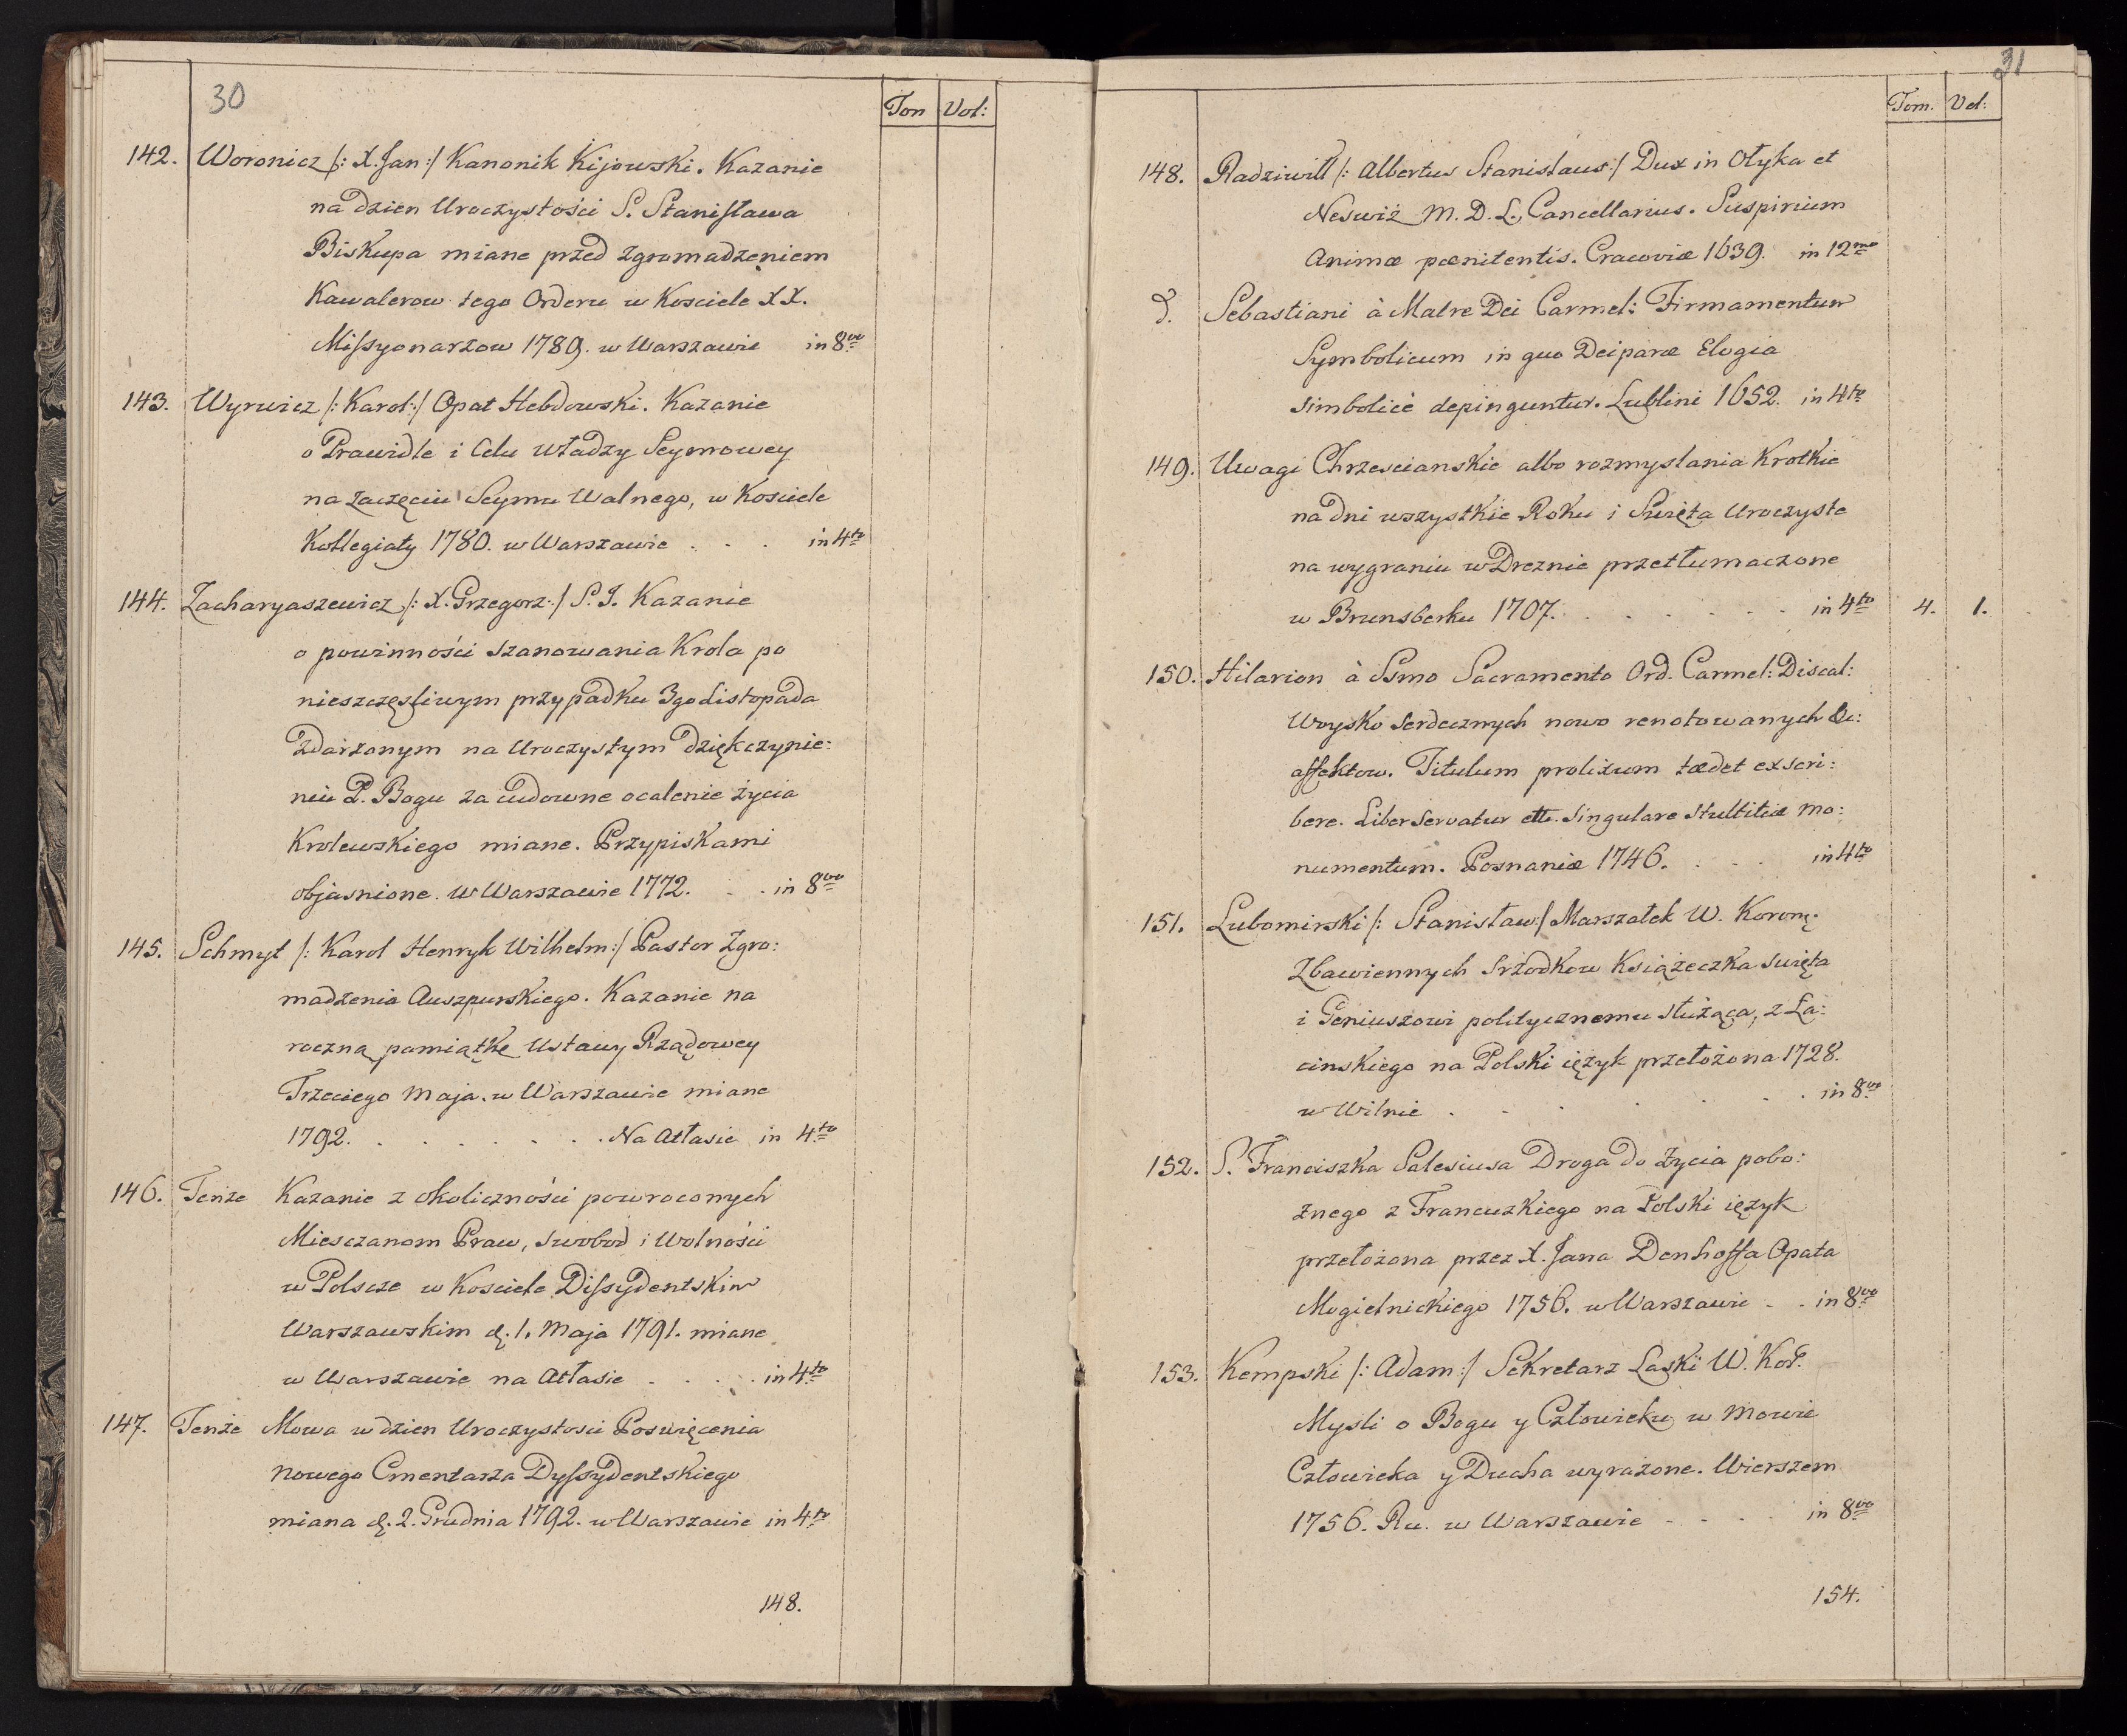 30
Tom Vol:
142. Woronicz /: X. Jan :/ Kanonik Kijowski. Kazanie
na dzien Uroczystości S. Stanisława
Biskupa miane przed zgromadzeniem
Kawalerow tego Orderu w Kosciele XX.
Missyonarzow 1789. w Warszawie in 8vo
143. Wyrwicz /: Karol :/ Opat Hebdowski. Kazanie
o Prawidle i Celu władzy Seymowey
na zaczęciu Seymu Walnego, w Kosciele
Kollegiaty 1780. w Warszawie . . . in 4to
144. Zacharyaszewicz /: X. Grzegorz :/ S. J. Kazanie
o powinności szanowania Krola po
nieszczęsliwym przypadku 3go Listopada
zdarzonym na Uroczystym dziękczynie:
niu P. Bogu za cudowne ocalenie życia
Krolewskiego miane. Przypiskami
objasnione. w Warszawie 1772. . . in 8vo
145. Schmyt /: Karol Henryk Wilhelm :/ Pastor Zgro:
madzenia Auszpurskiego. Kazanie na
roczną pamiątkę Ustawy Rządowey
Trzeciego Maja. w Warszawie miane
1792. . . . . . . . Na Atłasie in 4to
146. Tenże Kazanie z okoliczności powroconych
Miesczanom Praw, swobod i Wolności
w Polscze w Kosciele Dissydentskim
Warszawskim d. 1. Maja 1791. miane
w Warszawie na Atłasie . . . . in 4to
147. Tenże Mowa w dzien Uroczystosci Poswięcenia
nowego Cmentarza Dyssydentskiego
miana d. 2. Grudnia 1792. w Warszawie in 4to
148.
31
Tom. Vol:
148. Radziwiłł /: Albertus Stanislaus :/ Dux in Ołyka et
Neswiż M. D. L. Cancellarius. Suspirium
Animæ pœnitentis. Cracoviæ 1639. in 12mo
d. Sebastiani à Matre Dei Carmel: Firmamentum
Symbolicum in quo Deiparæ Elogia
simbolicè depinguntur. Lublini 1652. in 4to
149. Uwagi Chrzescianskie albo rozmyslania Krotkie
na dni wszystkie Roku i Swięta Uroczyste
na wygraniu w Dreznie przetłumaczone
w Brunsberku 1707. . . . . . . in 4to 4. 1.
150. Hilarion à Ssmo Sacramento Ord. Carmel: Discal:
Woysko serdecznych nowo renotowanych &c:
affektow. Titulum prolixum tædet exscri:
bere. Liber servatur ett. singulare stultitiæ mo:
numentum. Posnaniæ 1746. . . . in 4to
151. Lubomirski /: Stanisław :/ Marszałek W. Koronę.
Zbawiennych srzodkow Książeczka swięta
i Geniuszowi politycznemu służąca, z Ła:
cinskiego na Polski ięzyk przełożona 1728.
w Wilnie . . . . . . . in 8vo
152. S. Franciszka Salesiusa Droga do życia pobo:
żnego z Francuzkiego na Polski ięzyk
przełożona przez X. Jana Denhoffa Opata
Mogielnickiego 1756. w Warszawie . . in 8vo
153. Kempski /: Adam :/ Sekretarz Laski W. Kor.
Mysli o Bogu y Człowieku w mowie
Człowieka y Ducha wyrażone. Wierszem
1756. Ru. w Warszawie . . . . in 8vo
154.